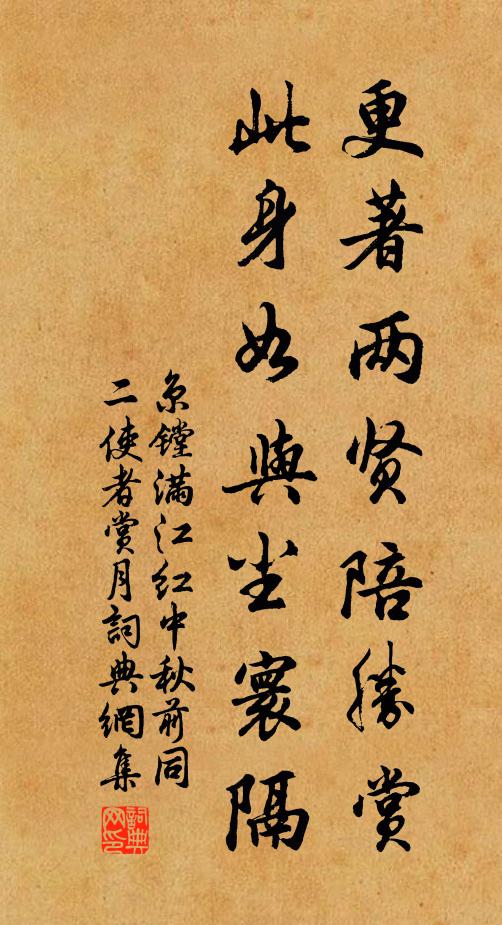 更著两贤陪勝赏
此身如與尘寰隔
京镗满江红中秋前同
二使者赏月詞典網集
詞典
网印